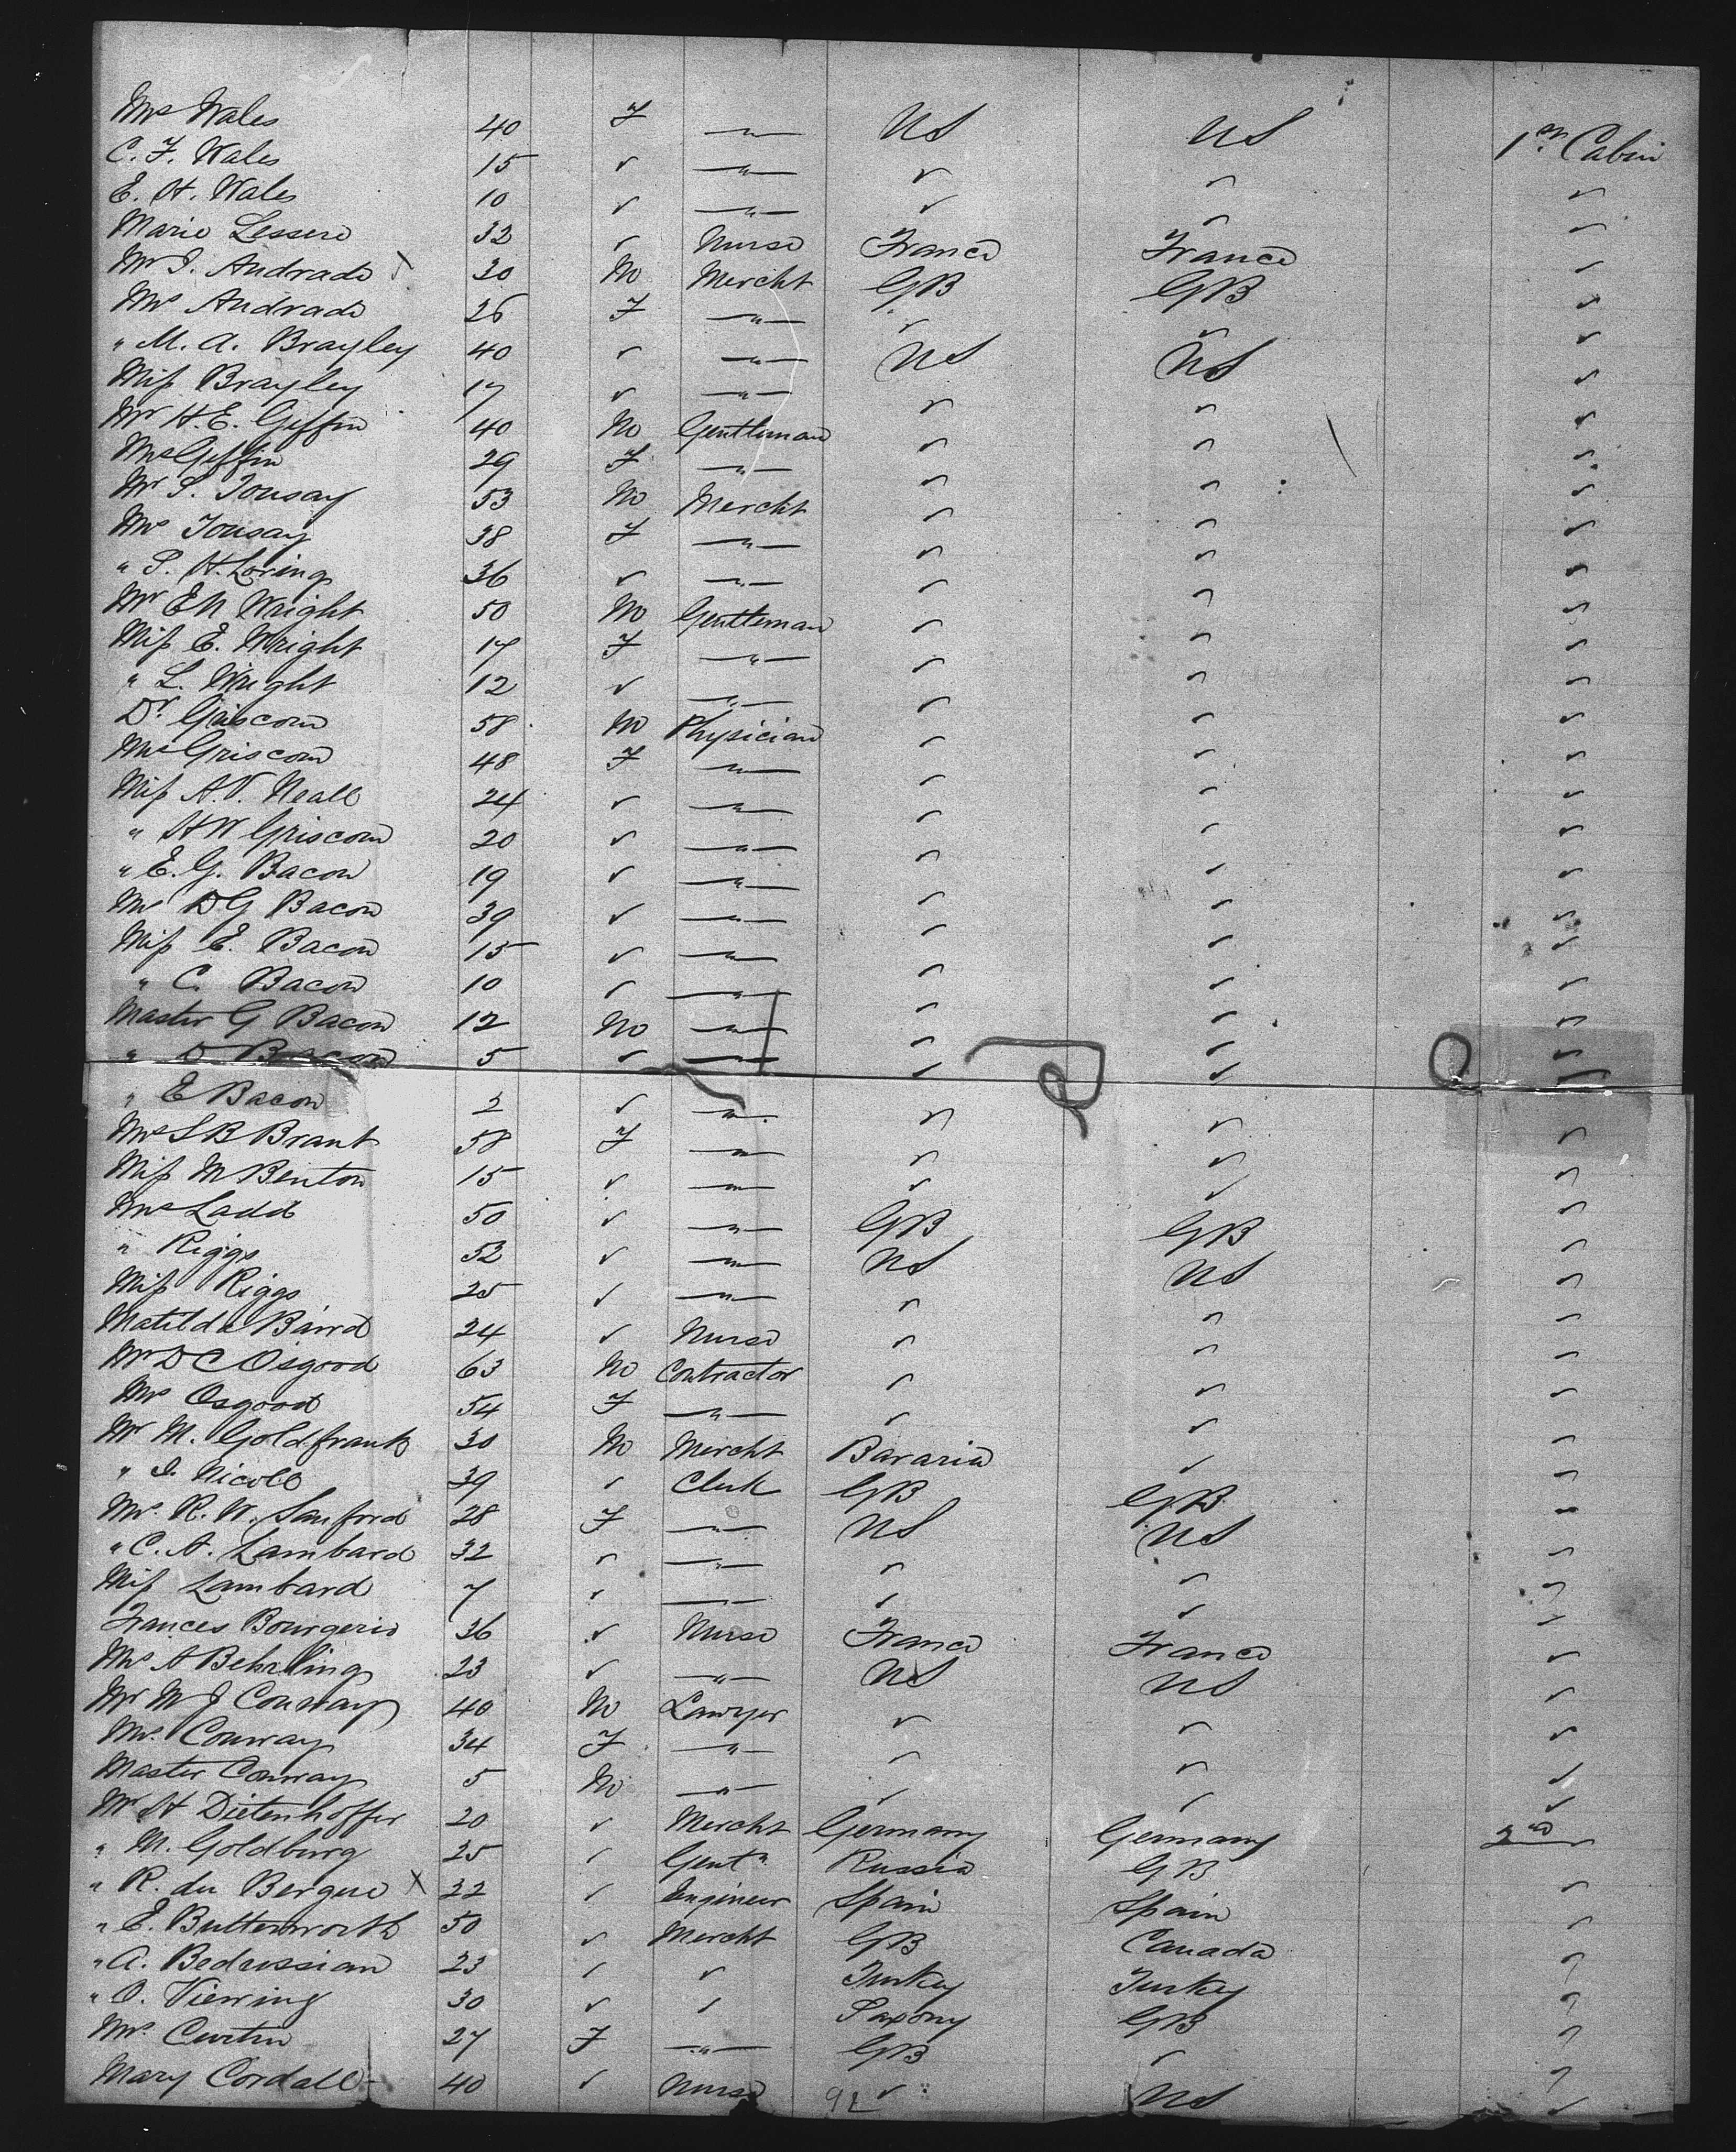 Mrs Wales 40 F —"— US US 1st Cabin
C. F. Wales 15 ✓ —"— ✓ ✓ ✓
E. H. Wales 10 ✓ —"— ✓ ✓ ✓
Marie Lessere 32 ✓ Nurse France France ✓
Mr J. Andrade 30 M Mercht GB GB ✓
Mrs Andrade 26 F —"— ✓ ✓ ✓
" M. A. Brayley 40 ✓ —"— US US ✓
Miss Brayley 17 ✓ —"— ✓ ✓ ✓
Mr H. E. Giffin 40 M Gentleman ✓ ✓ ✓
Mrs Giffin 29 F —"— ✓ ✓ ✓
Mr S. Tousay 53 M Mercht ✓ ✓ ✓
Mrs Tousay 38 F —"— ✓ ✓ ✓
" S. H. Loring 36 ✓ —"— ✓ ✓ ✓
Mr E N Wright 50 M Gentleman ✓ ✓ ✓
Miss E. Wright 17 F —"— ✓ ✓ ✓
" L. Wright 12 ✓ —"— ✓ ✓ ✓
Dr. Griscom 58 M Physician ✓ ✓ ✓
Mrs Griscom 48 F —"— ✓ ✓ ✓
Miss A. V. Neall 24 ✓ —"— ✓ ✓ ✓
" H W Griscom 20 ✓ —"— ✓ ✓ ✓
" E. G. Bacon 19 ✓ —"— ✓ ✓ ✓
Mrs D G Bacon 39 ✓ —"— ✓ ✓ ✓
Miss E. Bacon 15 ✓ —"— ✓ ✓ ✓
" C. Bacon 10 ✓ —"— ✓ ✓ ✓
Master G Bacon 12 M —"— ✓ ✓ ✓
" D Bacon 5 ✓ —"— ✓ ✓ ✓
" E Bacon 2 ✓ —"— ✓ ✓ ✓
Mrs S B Brant 58 F —"— ✓ ✓ ✓
Miss M Benton 15 ✓ —"— ✓ ✓ ✓
Mrs Ladd 50 ✓ —"— GB GB ✓
" Riggs 52 ✓ —"— US US ✓
Miss Riggs 25 ✓ —"— ✓ ✓ ✓
Matilda Baird 24 ✓ Nurse ✓ ✓ ✓
Mr D C Osgood 63 M Contractor ✓ ✓ ✓
Mrs Osgood 54 F —"— ✓ ✓ ✓
Mr M. Goldfrank 30 M Mercht Bavaria ✓ ✓
" J. Nicoll 39 ✓ Clerk GB GB ✓
Mrs. R. W. Sanford 28 F —"— US US ✓
" C. A. Lambard 32 ✓ —"— ✓ ✓ ✓
Miss Lambard 7 ✓ —"— ✓ ✓ ✓
Frances Bourgerie 36 ✓ Nurse France France ✓
Mrs A Behrling 23 ✓ —"— US US ✓
Mr M J Conway 40 M Lawyer ✓ ✓ ✓
Mrs. Conway 34 F —"— ✓ ✓ ✓
Master Conway 5 M —"— ✓ ✓ ✓
Mr H Dietenhoffer 20 ✓ Mercht Germany Germany 2nd
" M. Goldburg 25 ✓ Gentn Russia GB ✓
" R. du Bergue X 22 ✓ Engineer Spain Spain ✓
" E. Butterworth 50 ✓ Mercht GB Canada ✓
" A. Bedrossian 23 ✓ ✓ Turkey Turkey ✓
" O. Vierring 30 ✓ ✓ Saxony GB ✓
Mrs. Curtin 27 F —"— GB ✓ ✓
Mary Cordall 40 ✓ Nurse ✓ US ✓